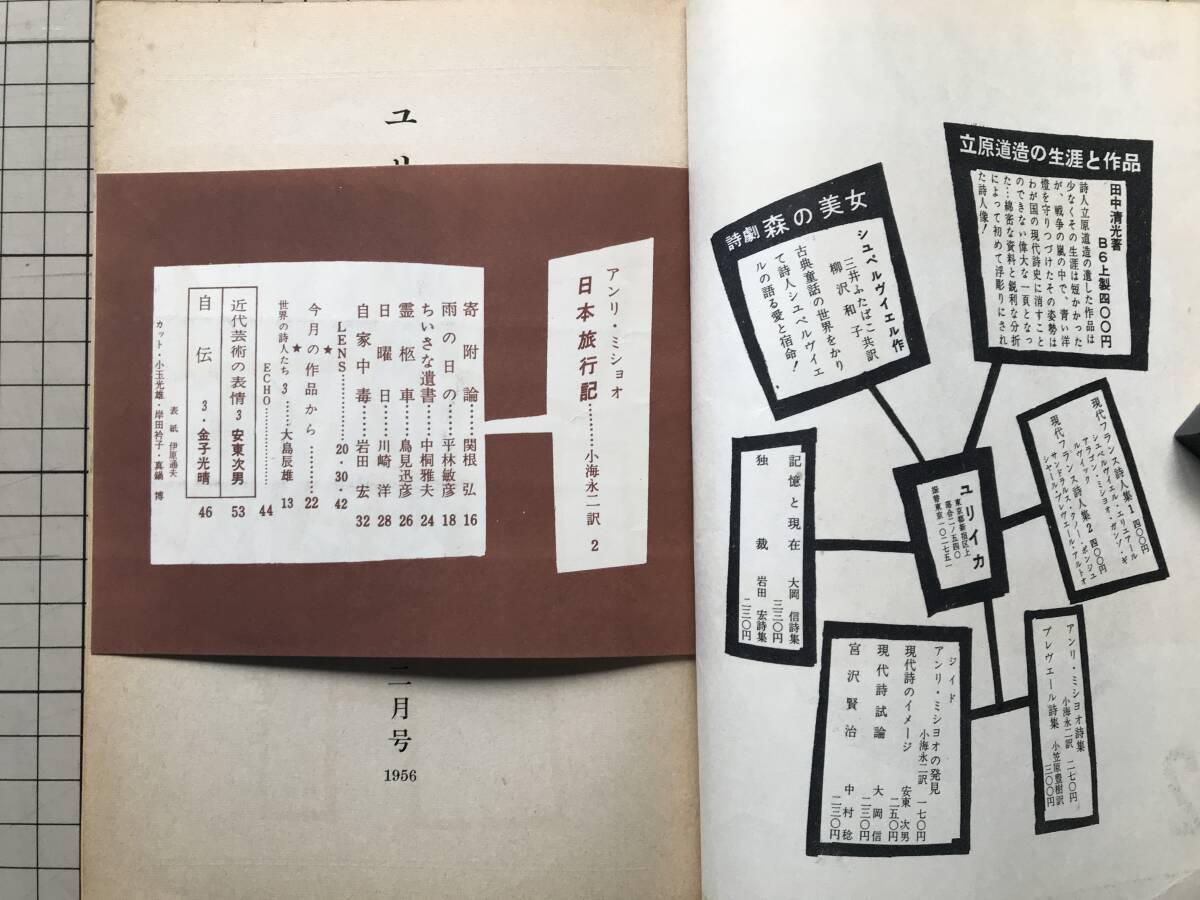 ユリ
二月号
1956
アンリ・ミショオ
日本旅行記………小海永二訳 2
寄附論……関根弘 16
雨の日の……平林敏彦 18
ちいさな遺書……中桐雅夫 24
霊柩車……鳥見迅彦 26
日曜日……川崎洋 28
自家中毒……岩田宏 32
★
LENS…………20・30・42
今月の作品から…………22
★
世界の詩人たち 3……大島辰雄 13
ECHO…………44
近代芸術の表情 3 安東次男 53
自伝 3・金子光晴 46
表紙 伊原通夫
カット・小玉光雄・岸田衿子・真鍋博
立原道造の生涯と作品
田中清光著
B6上製四〇〇円
詩人立原道造の遺した作品は
少なくその生涯は短かかった
が、戦争の嵐の中で、青い洋
燈を守りつづけたその姿勢は
わが国の現代詩史に消すこと
のできない偉大な一頁となっ
た…綿密な資料と鋭利な分折
によって初めて浮彫りにされ
た詩人像!
詩劇 森の美女
シュペルヴィエル作
三井ふたばこ共訳
柳沢和子
古典童話の世界をかり
て詩人シュペルヴィエ
ルの語る愛と宿命!
ユリイカ
東京都新宿区上
落合二ノ五四〇
振替東京一〇二七五一
現代フランス詩人集1 四〇〇円
シュペルヴィエル・エリュアール
アラゴン・ミショオ・ガンゾ・ギ
ルヴィック
現代フランス詩人集2 四〇〇円
サンドラルス・クノー・ポンジュ
シャール・プレヴェール・アルトオ
記憶と現在 大岡信詩集
三三〇円
独裁 岩田宏詩集
二三〇円
アンリ・ミショオ詩集
小海永二訳 二七〇円
プレヴェール詩集 小笠原豊樹訳
三〇〇円
ジイド
アンリ・ミショオの発見
小海永二訳 一七〇円
現代詩のイメージ 安東次男
二五〇円
現代詩試論 大岡信
二三〇円
宮沢賢治 中村稔
二三〇円